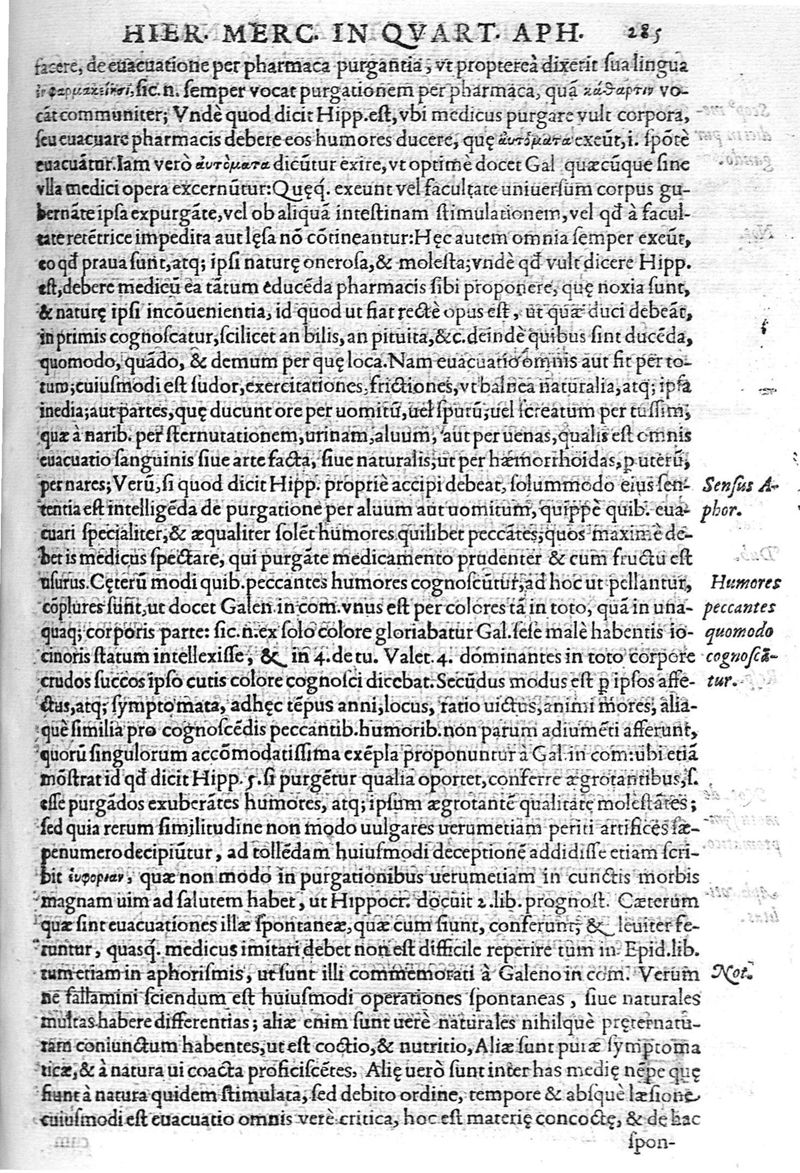 HIER. MERC. IN QVART. APH. 285
facere, de euacuatione per pharmaca purgantia, vt proptereà dixerit sua lingua
sic.n. semper vocat purgationem per pharmaca, quã κάθαρσιν vo-
cãt communiter; Vndè quod dicit Hipp.est, vbi medicus purgare vult corpora,
seu euacuare pharmacis debere eos humores ducere, quę αυτόματα exeũt, i. spõtè
euacuãtur. Iam verò αυτόματα dicũtur exire, vt optimè docet Gal quæcũque sine
vlla medici opera excernũtur: Quęq. exeunt vel facultate uniuersum corpus gu-
bernãte ipsa expurgãte, vel ob aliquã intestinam stimulationem, vel qđ à facul-
tate retẽtrice impedita aut lęsa nõ cõtineantur: Hęc autem omnia semper exeũt,
eo qđ praua sunt, atq; ipsi naturę onerosa, & molesta; vndè qđ vult dicere Hipp.
est, debere medicũ ea tãtum educẽda pharmacis sibi proponere, quę noxia sunt,
& naturę ipsi incõuenientia, id quod ut fiat rectè opus est, ut quæ duci debeãt,
in primis cognoscatur, scilicet an bilis, an pituita, &c. deindè quibus sint ducẽda,
quomodo, quãdo, & demum per quę loca. Nam euacuatio omnis aut fit per to-
tum; cuiusmodi est sudor, exercitationes, frictiones, vt balnea naturalia, atq; ipsa
inedia; aut partes, quę ducunt ore per uomitũ, uel sputũ; uel screatum per tussim;
quæ à narib. per sternutationem, urinam, aluum, aut per uenas, qualis est omnis
euacuatio sanguinis siue arte facta, siue naturalis; ut per hæmorrhoidas, p uterũ,
per nares; Verũ, si quod dicit Hipp. propriè accipi debeat, solummodo eius sen-
tentia est intelligẽda de purgatione per aluum aut uomitum, quippè quib. eua-
cuari specialiter, & æqualiter solẽt humores quilibet peccãtes; quos maximè de-
bet is medicus spectare, qui purgãte medicamento prudenter & cum fructu est
usurus. Cęterũ modi quib. peccantes humores cognoscũtur, ad hoc ut pellantur,
cõplures sunt, ut docet Galen. in com. vnus est per colores tã in toto, quã in una-
quaq; corporis parte: sic.n. ex solo colore gloriabatur Gal. sese malè habentis io-
cinoris statum intellexisse, & in 4. de tu. Valet. 4. dominantes in toto corpore
crudos succos ipso cutis colore cognosci dicebat. Secũdus modus est p ipsos affe-
ctus, atq; symptomata, adhęc tẽpus anni, locus, ratio uictus, animi mores, alia-
què similia pro cognoscẽdis peccantib. humorib. non parum adiumẽti afferunt,
quorũ singulorum accõmodatissima exẽpla proponuntur à Gal. in com: ubi etiã
mõstrat id qđ dicit Hipp. 5. si purgẽtur qualia oportet, conferre ægrotantibus, s.
esse purgãdos exuberãtes humores, atq; ipsum ægrotantẽ qualitatę molestãtes;
sed quia rerum similitudine non modo uulgares uerumetiam periti artifices sæ-
penumero decipiũtur, ad tollẽdam huiusmodi deceptionẽ addidisse etiam scri-
bit quæ non modo in purgationibus uerumetiam in cunctis morbis
magnam uim ad salutem habet, ut Hippocr. docuit 2. lib. prognost. Cæterum
quæ sint euacuationes illæ spontaneæ, quæ cum fiunt, conferunt, & leuiter fe-
runtur, quasq. medicus imitari debet non est difficile reperire tum in Epid. lib.
tum etiam in aphorismis, ut sunt illi commemorati à Galeno in com. Verum
nè fallamini sciendum est huiusmodi operationes spontaneas, siue naturales
multas habere differentias; aliæ enim sunt uerè naturales nihilquè pręternatu-
ram coniunctum habentes, ut est coctio, & nutritio, Aliæ sunt puræ symptoma
ticæ, & à natura ui coacta proficiscẽtes. Alię uerò sunt inter has medię nẽpe quę
fiunt à natura quidem stimulata, sed debito ordine, tempore & absquè læsione
cuiusmodi est euacuatio omnis verè critica, hoc est materię concoctę, & de hac
spon-
Sensus A-
phor.
Humores
peccantes
quomodo
cognoscã-
tur.
Not.